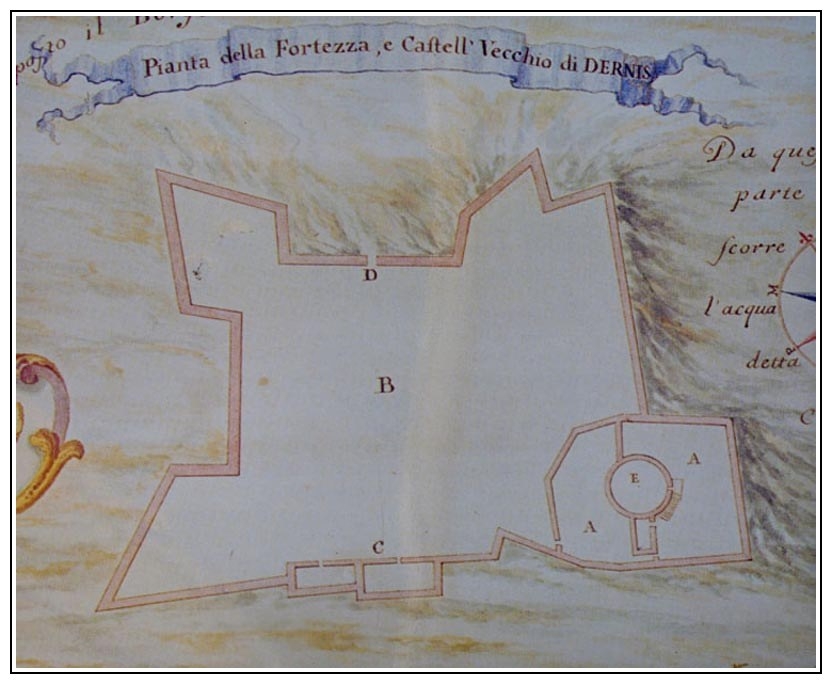 il
Pianta della Fortezza, e Caſtell' Vecchio di DERNIS
Da
parte
ſcorre
l'acqua
detta
M
D
B
A
E
A
C
C